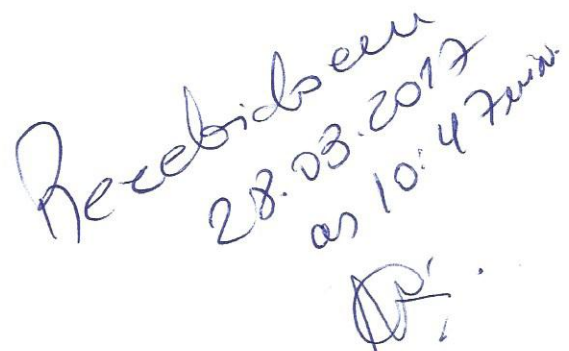 Recebido em
28.03.2017
as 10:47min.